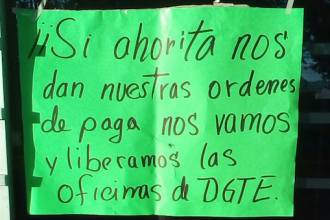 ¡¡Si ahorita nos
dan nuestras ordenes
de paga nos vamos
y liberamos las
oficimas de DGTE.